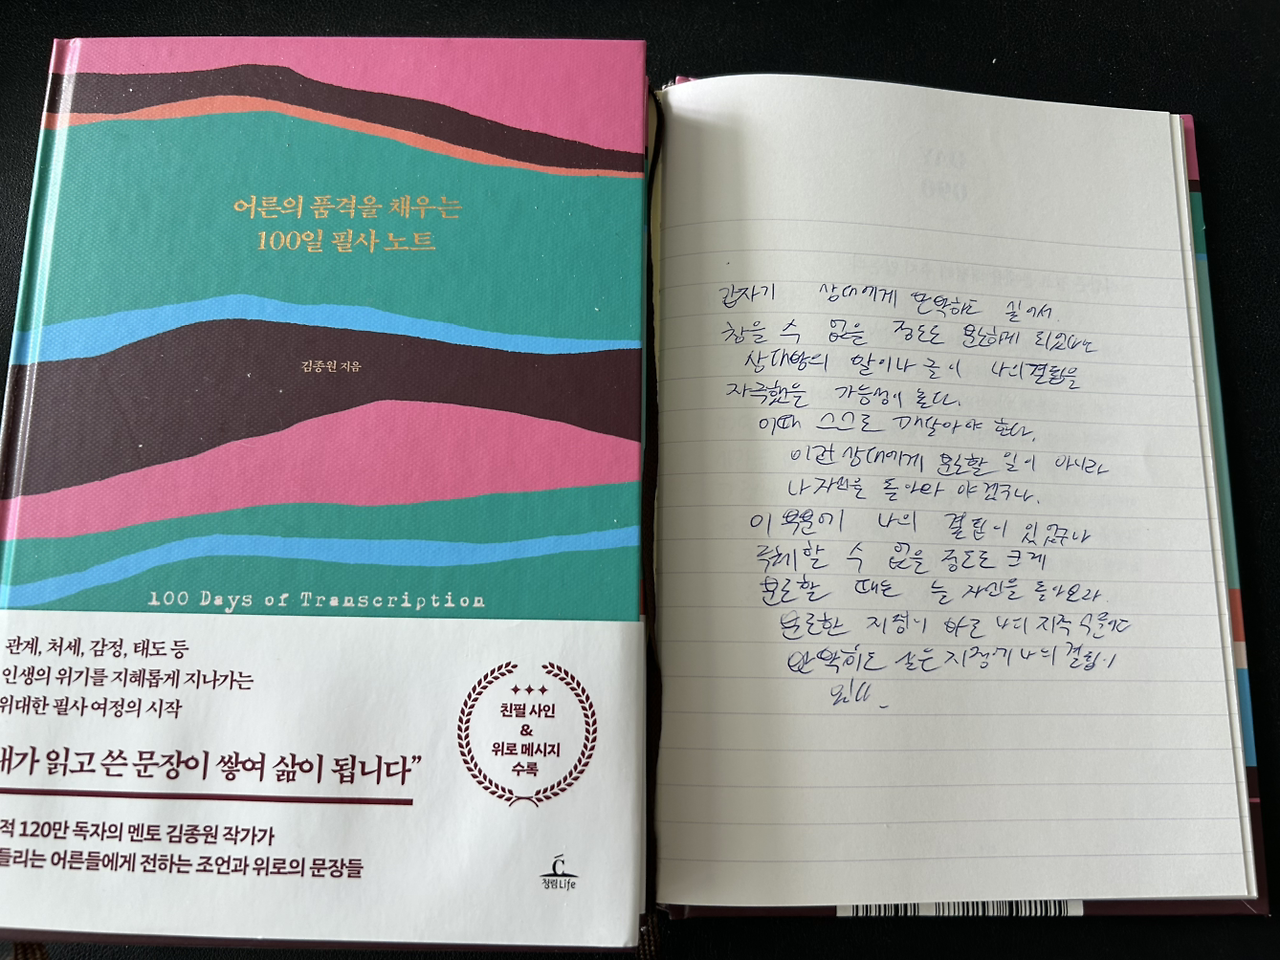 어른의 품격을 채우는
100일 필사 노트
김종원 지음
100 Days of Transcription
관계, 처세, 감정, 태도 등
인생의 위기를 지혜롭게 지나가는
위대한 필사 여정의 시작
내가 읽고 쓴 문장이 쌓여 삶이 됩니다”
적 120만 독자의 멘토 김종원 작가가
들리는 어른들에게 전하는 조언과 위로의 문장들
친필 사인
&
위로 메시지
수록
청림Life
갑자기 상대에게 반박하고 싶어서
참을 수 없을 정도로 분노하게 되었다면
상대방의 말이나 글이 나의 결핍을
자극했을 가능성이 높다.
이때 스스로 깨달아야 한다.
이건 상대에게 분노할 일이 아니라
나 자신을 돌아봐야겠구나.
이 부분에 나의 결핍이 있었구나
주체할 수 없을 정도로 크게
분노할 때는 늘 자신을 돌아보라
분노한 지점이 바로 나의 지적 수준이고
반박하고 싶은 지점이 나의 결핍이